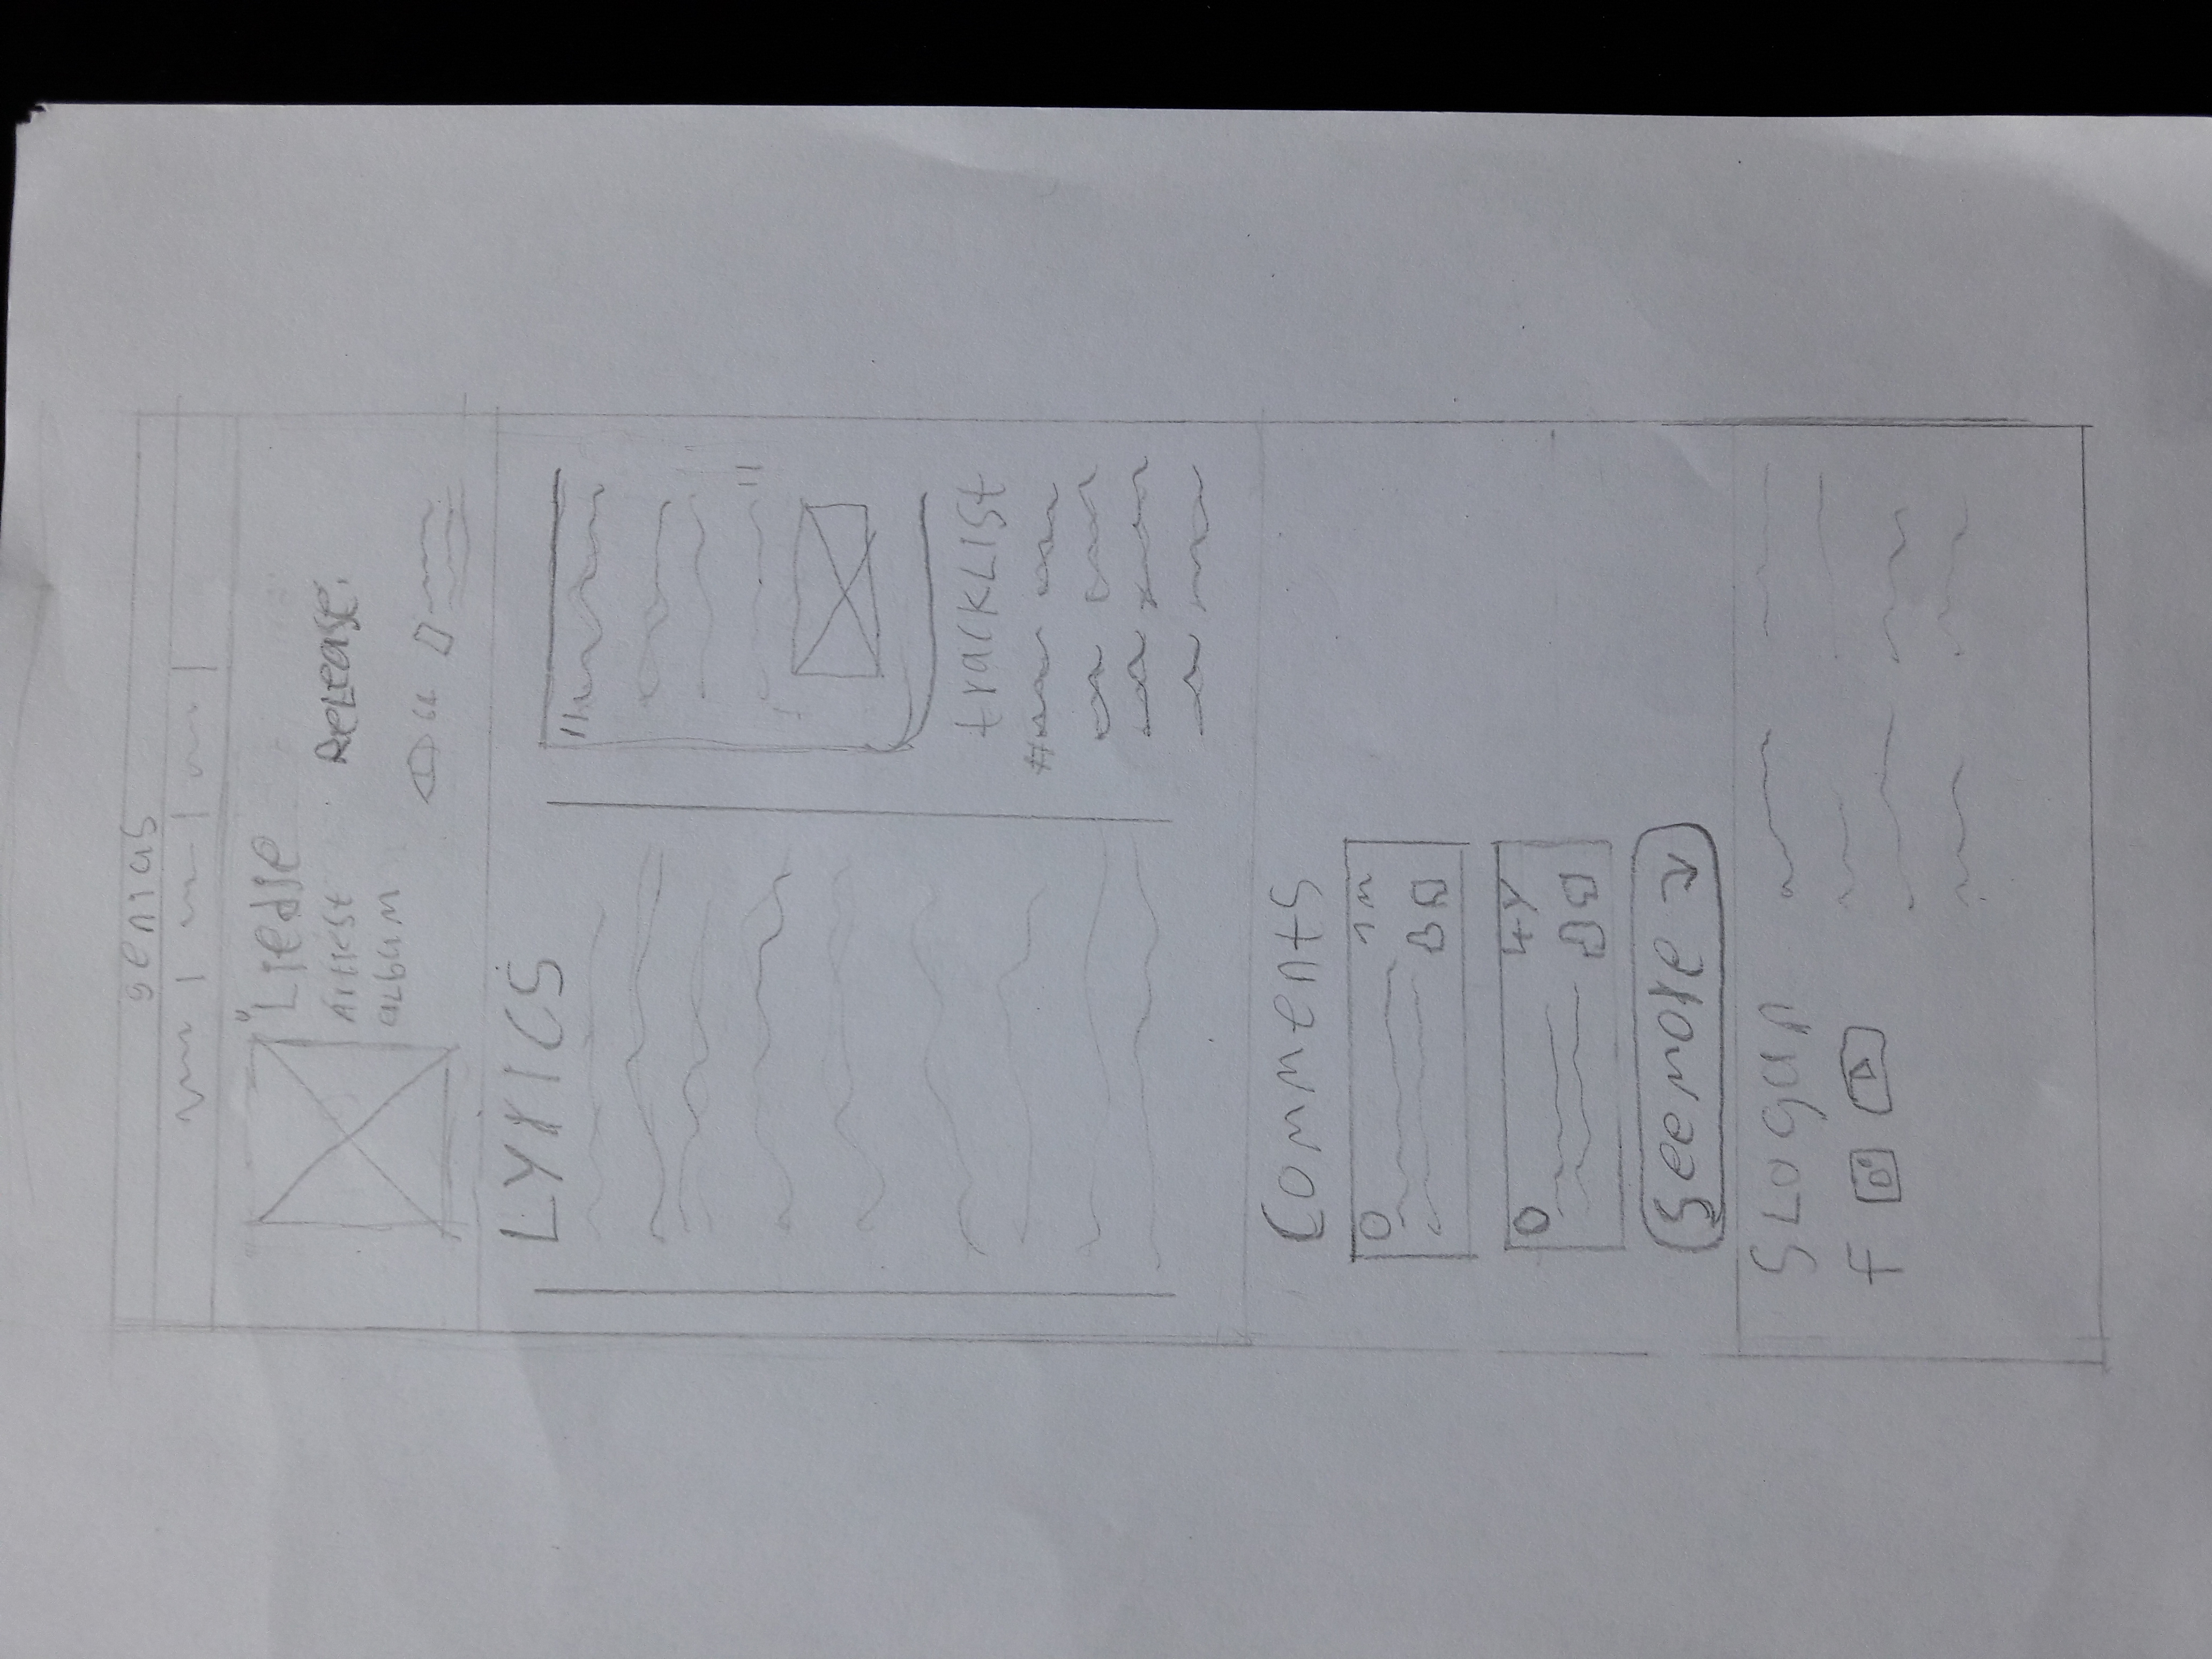 genius
"Liedje
Artiest
album
Release:
LYRICS
"
"
trackList
#
Comments
1m
4Y
See more
SLogan
f